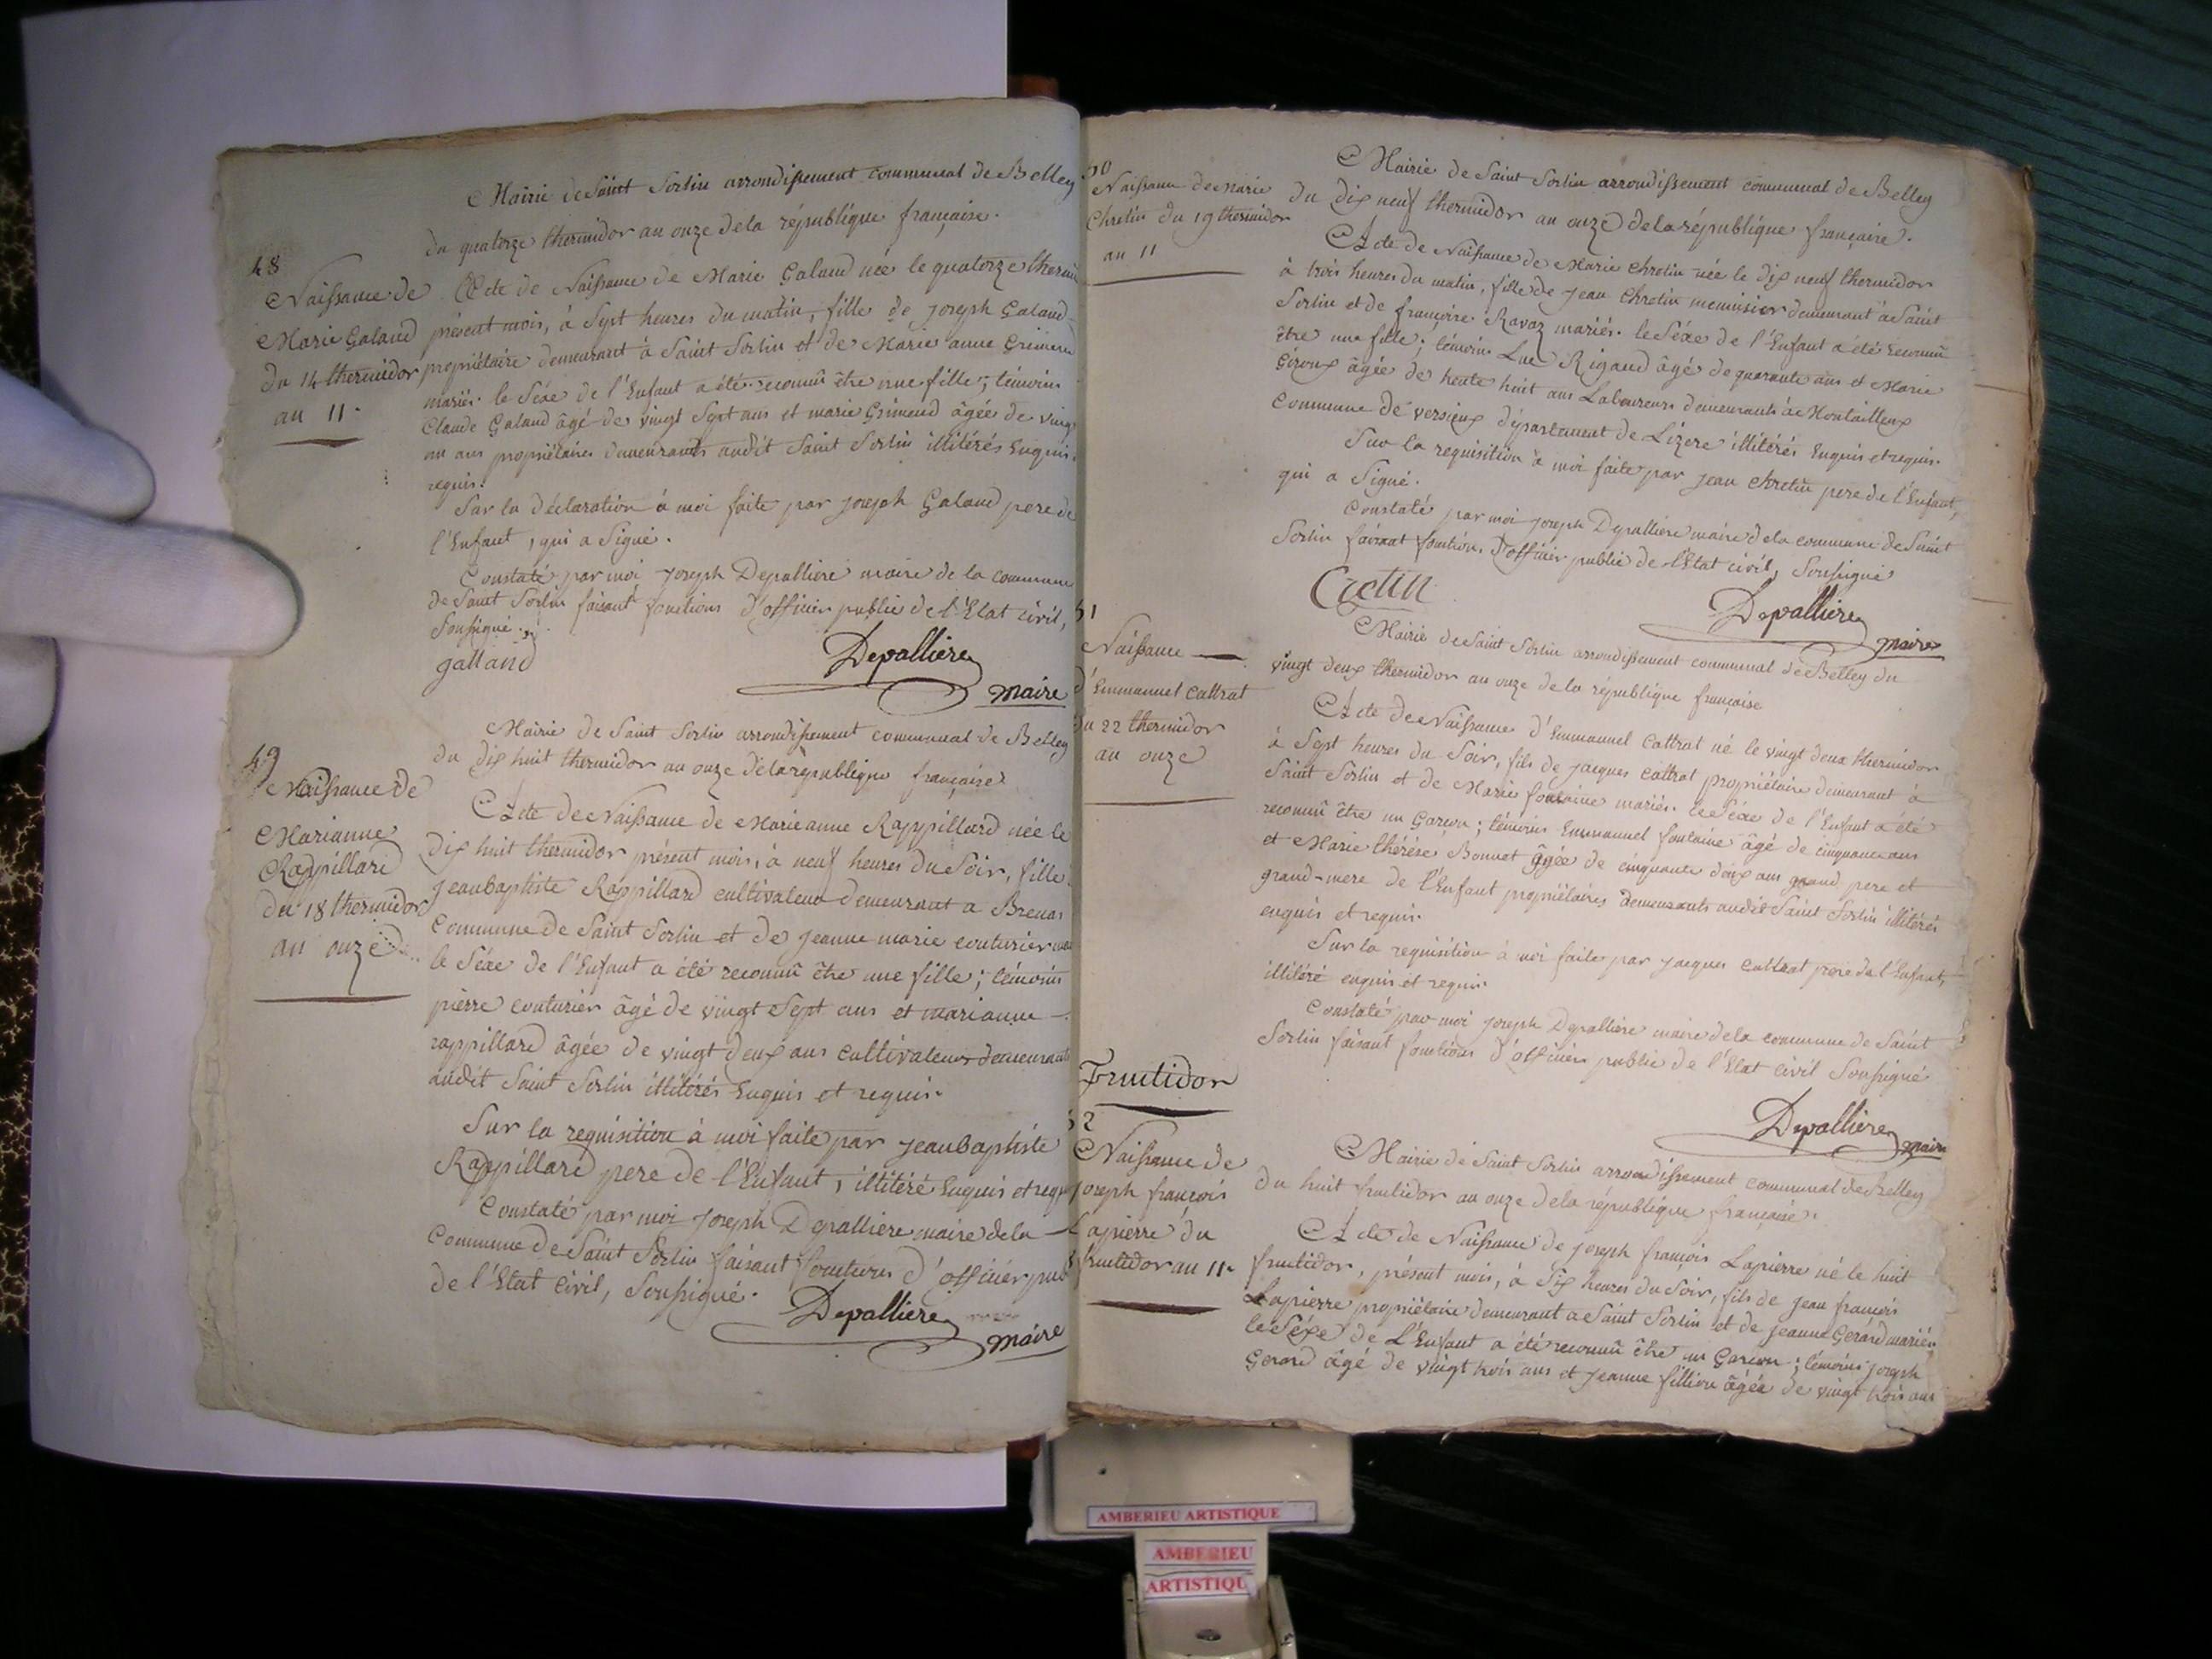 Mairie de Saint Sorlin arrondissement communal de Belley
du quatorze thermidor an onze de la république française.
48
Naissance de
Marie Galand
du 14 thermidor
an 11.
Acte de Naissance de Marie Galand née le quatorze
présent mois, à Sept heures du matin, fille de joseph Galand
propriétaire demeurant à Saint Sorlin et de Marie anne
mariés. le Séxe de l'Enfant a été reconnû être une fille; témoins
Claude Galand âgé de vingt Sept ans et marie Grimaud âgée de
un ans propriétaires demeurants audit Saint Sorlin illitérés Enquis
requis.
Sur la déclaration à moi faite par joseph Galand pere de
l'Enfant, qui a Signé.
Constaté par moi joseph Depalliere maire de la commune
de Saint Sorlin faisant fonctions d'officier public de l'Etat civil,
Soussigné.
galland
Depalliere
maire
Mairie de Saint Sorlin arrondissement communal de Belley
du dix huit thermidor an onze de la république française
49
Naissance de
Marianne
Rappillard
du 18 thermidor
an onze
Acte de Naissance de Marieanne Rappillard née le
dix huit thermidor présent mois, à neuf heures du Soir, fille
jeanbaptiste Rappillard cultivateur demeurant a
Commune de Saint Sorlin et de jeanne marie couturier
le Séxe de l'Enfant a été reconnû être une fille; témoins
pierre couturier âgé de vingt Sept ans et marianne
rappillard âgée de vingt deux ans cultivateurs demeurants
audit Saint Sorlin illitérés Enquis et requis.
Sur la requisition à moi faite par jeanbaptiste
Rappillard pere de l'Enfant, illitéré Enquis et
Constaté par moi joseph Depalliere maire de la
Commune de Saint Sorlin faisant fonctions d'officier
de l'Etat Civil, Soussigné.
Depalliere
maire
50
Naissance de Marie
Chretin du 19 thermidor
an 11
Mairie de Saint Sorlin arrondissement communal de Belley
du dix neuf thermidor an onze de la république française.
Acte de Naissance de Marie Chretin née le dix neuf thermidor
à trois heures du matin, fille de jean Chretin menuisier demeurant à Saint
Sorlin et de françoise Ravaz mariés. le Séxe de l'Enfant a été reconnû
être une fille; témoins Luc Rigaud âgé de quarante ans et Marie
Giroux âgée de trente huit ans Laboureurs demeurants à
commune de département de Lizere illitérés Enquis et requis.
Sur la requisition à moi faite par jean Chretin pere de l'Enfant,
qui a Signé.
Constaté par moi joseph Depalliere maire de la commune de Saint
Sorlin faisant fonctions d'officier public de l'Etat civil, Soussigné
Cretin
Depalliere
maire
51
Naissance
d'Emmanuel Cattrat
du 22 thermidor
an onze
Mairie de Saint Sorlin arrondissement communal de Belley du
vingt deux thermidor an onze de la république française
Acte de Naissance d'Emmanuel Cattrat né le vingt deux thermidor
à Sept heures du Soir, fils de jacques Cattrat propriétaire demeurant à
Saint Sorlin et de Marie fontaine mariés. le Séxe de l'Enfant a été
reconnû être un Garcon; témoins Emmanuel fontaine âgé de cinquante ans
et Marie therése Bonnet âgée de cinquante deux ans grand pere et
grand-mere de l'Enfant propriétaires demeurants audit Saint Sorlin illitérés
enquis et requis.
Sur la requisition à moi faite par jacques Cattrat pere de l'Enfant,
illitéré enquis et requis.
Constaté par moi joseph Depalliere maire de la commune de Saint
Sorlin faisant fonctions d'officier public de l'Etat civil Soussigné
Depalliere
maire
Fructidor
52
Naissance de
joseph françois
Lapierre du
8 fructidor an 11.
Mairie de Saint Sorlin arrondissement communal de Belley
du huit fructidor an onze de la république française.
Acte de Naissance de joseph françois Lapierre né le huit
fructidor, présent mois, à Six heures du Soir, fils de jean françois
Lapierre propriétaire demeurant a Saint Sorlin et de jeanne Gerard mariés
le Séxe de L'Enfant a été reconnû être un Garcon; témoins joseph
Gerard âgé de vingt trois ans et jeanne fillion âgée de vingt trois ans
AMBERIEU ARTISTIQUE
AMBERIEU
ARTISTIQU